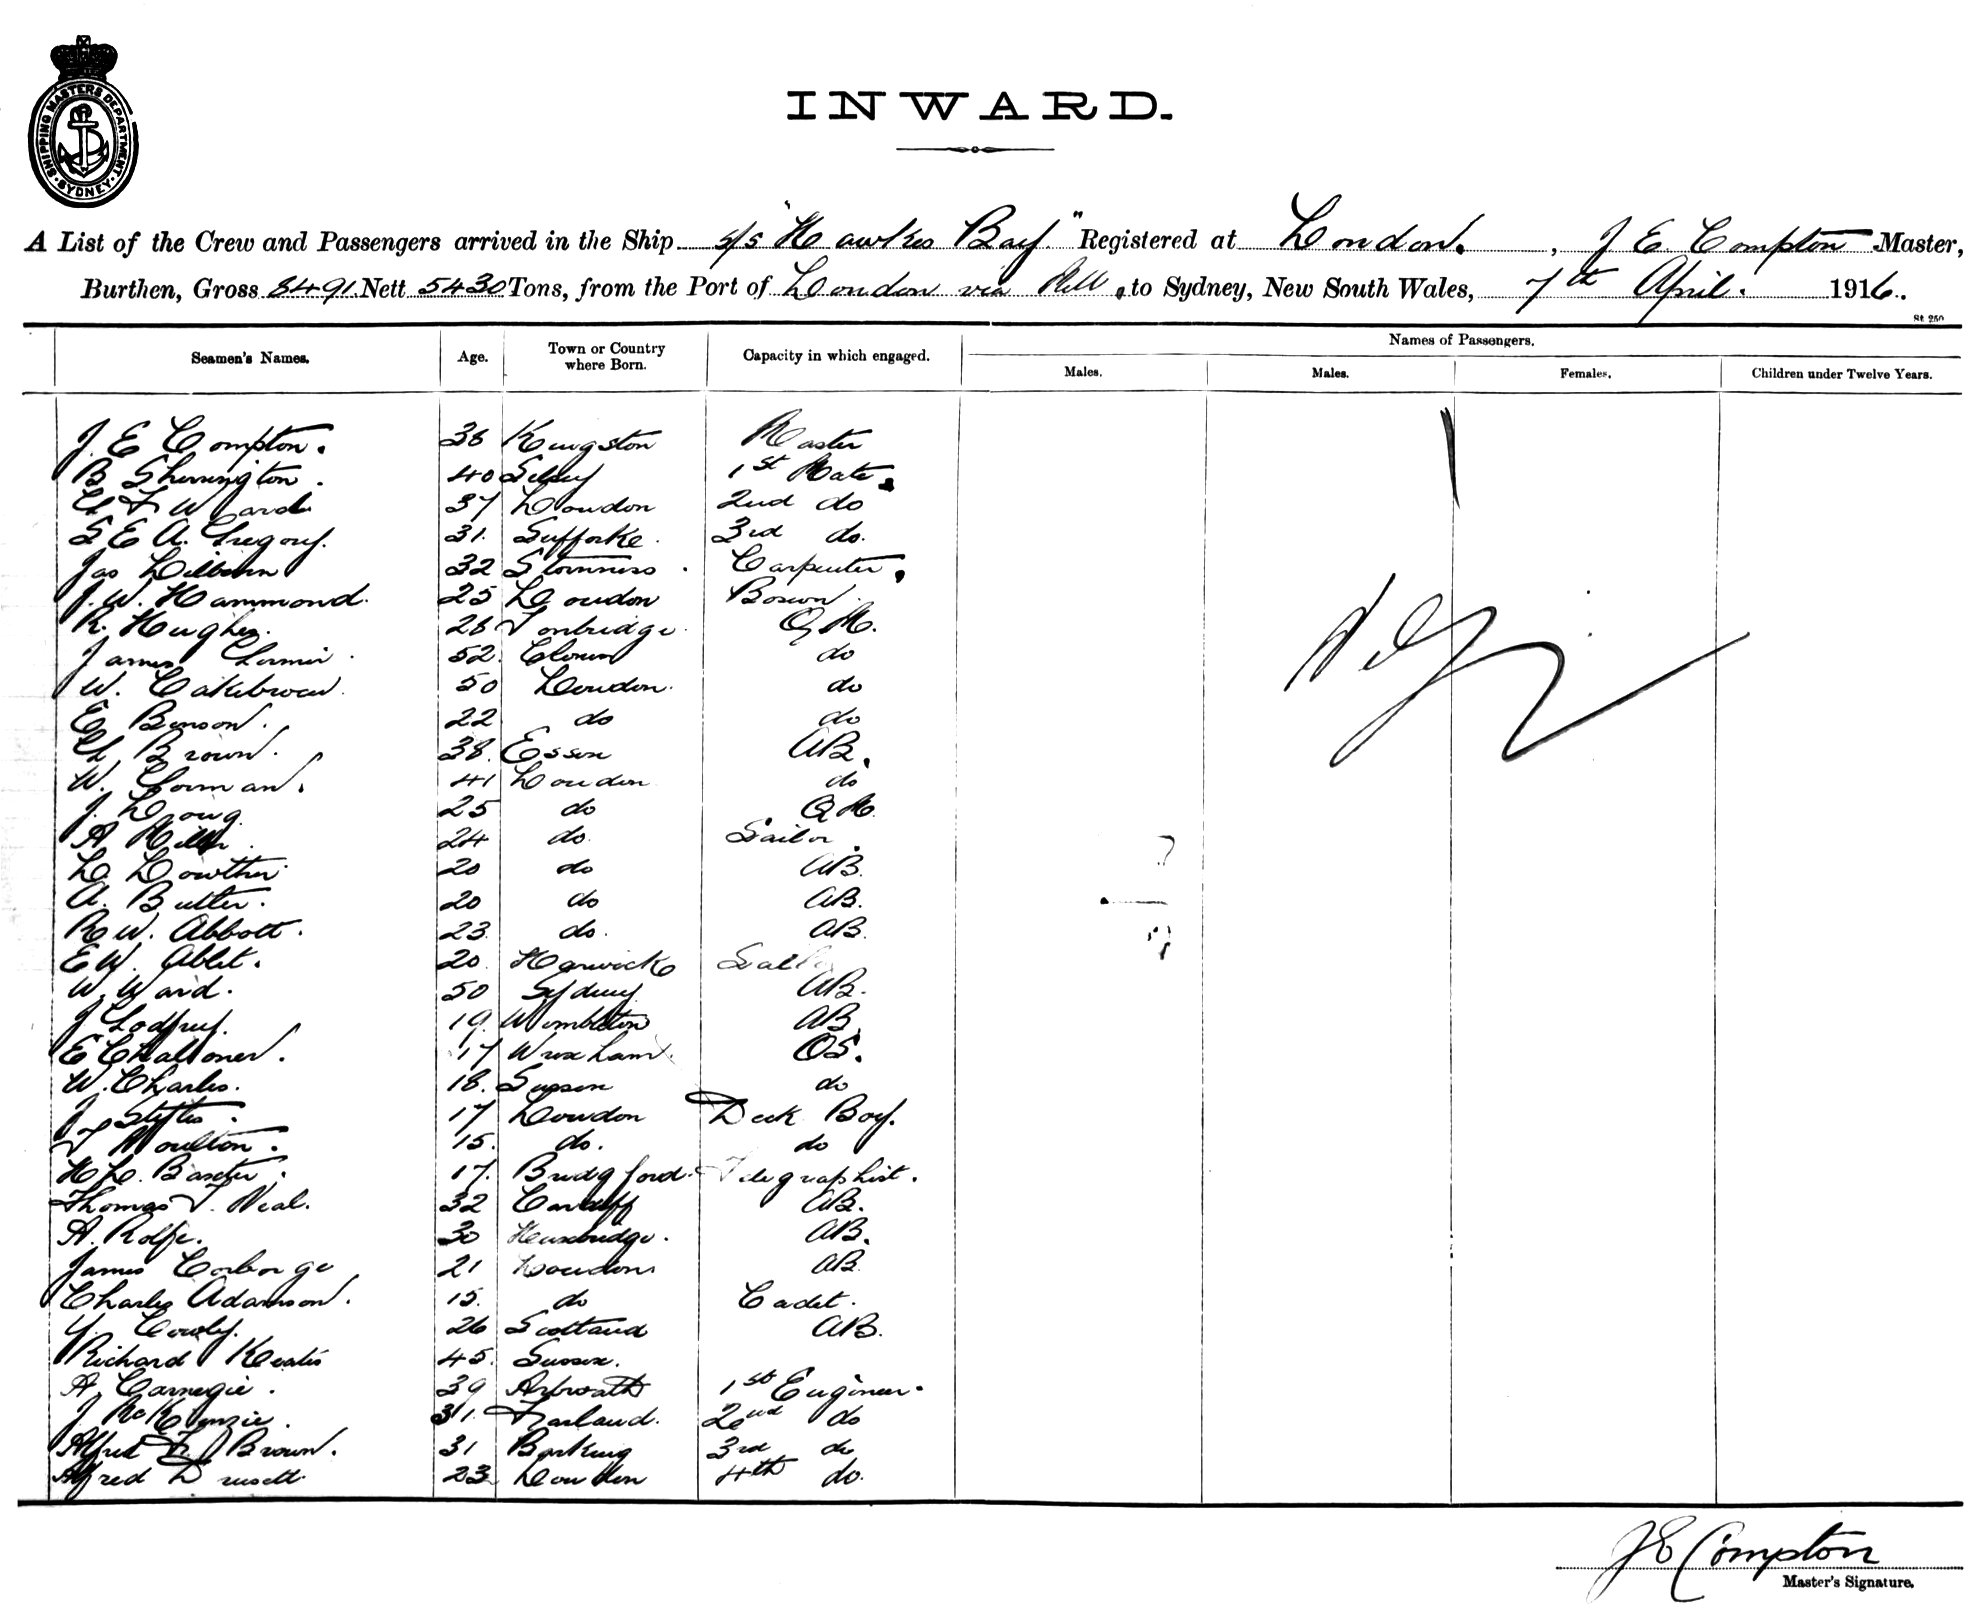 SHIPPING MASTERS DEPARTMENT. SYDNEY.
INWARD.
A List of the Crew and Passengers arrived in the Ship s/s "Hawkes Bay" Registered at London. , J E Compton Master,
Burthen, Gross 8491 Nett 5430 Tons, from the Port of London via to Sydney, New South Wales, 7th April. 1916.
St 250
Seamen's Names. Age. Town or Country where Born. Capacity in which engaged. Names of Passengers.
Males. Males. Females. Children under Twelve Years.
J. E Compton. 36 Kingston Master
B Sherrington. 40 1st Mate
W 37 London 2nd do
S E A. Gregory. 31. Suffolke. 3rd do.
Jas Lilburn 32 Stromness. Carpenter.
J. W. Hammond. 25 London Bosun.
R. Hughes. 26 Tonbridge. Q M.
James 52. do
W. Cakebread. 50 London. do
E Benson. 22 do do
Brown. 38. Essex AB.
W. Gorman. 41 London do
J. Long 25 do Q M.
A 24 do. Sailor.
L. Lowther 20 do AB.
A. Butler. 20 do AB.
R W. Abbott. 23 do. AB.
E W. Ablet. 20. Harwick
W. Ward. 50 Sydney AB.
J Godfrey. 19. Wombleton AB.
E Challoner. 17 Wrexham. OS.
W. Charles. 18. Sussex do
J 17 London Deck Boy.
T Moulton. 15. do. do
H L. Baxter. 17. Bridgford. Telegraphist.
Thomas T. Neal. 32 Cardiff AB.
A. Rolfe. 30 AB.
James 21 London AB
Charles Adamson. 15. do Cadet.
Cowley. 26 Scotland AB.
Richard Keates 45. Sussex.
A. Carnegie. 39 Arbroath 1st Engineer.
J. McKenzie. 31. 2nd do
Alfred Brown. 31 Barking 3rd do
Alfred 23 London 4th do.
J E Compton
Master's Signature.